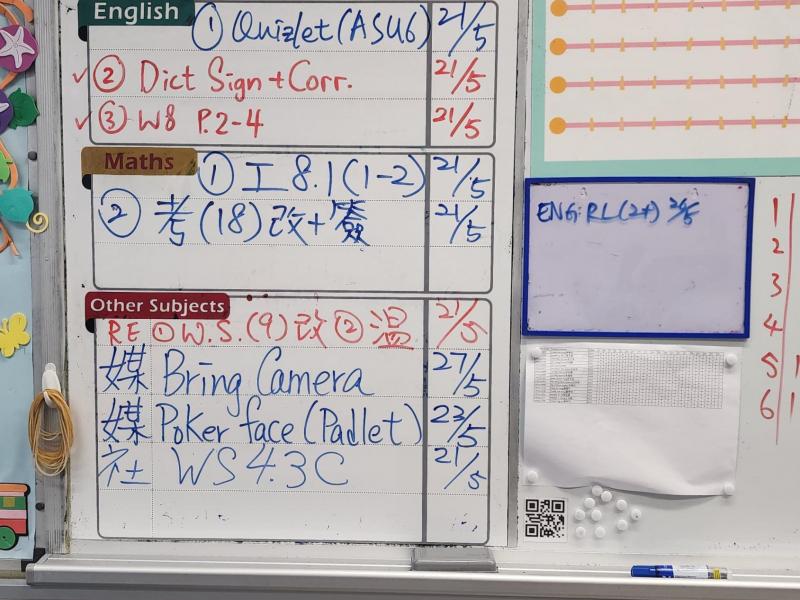 English
① Quizlet (ASU6) 21/5
② Dict Sign + Corr. 21/5
③ W8 P.2-4 21/5
Maths
① 工 8.1 (1-2) 21/5
② 考 (18) 改+簽 21/5
Other Subjects
RE ① W.S. (9) 改 ② 溫 21/5
媒 Bring Camera 27/5
媒 Poker face (Padlet) 23/5
社 WS 4.3C 21/5
ENG: RL
1
2
3
4
5 1
6 1